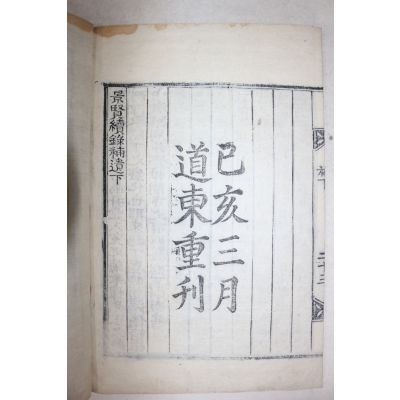 己亥三月
道東重刊
景賢續錄補遺下
二十三